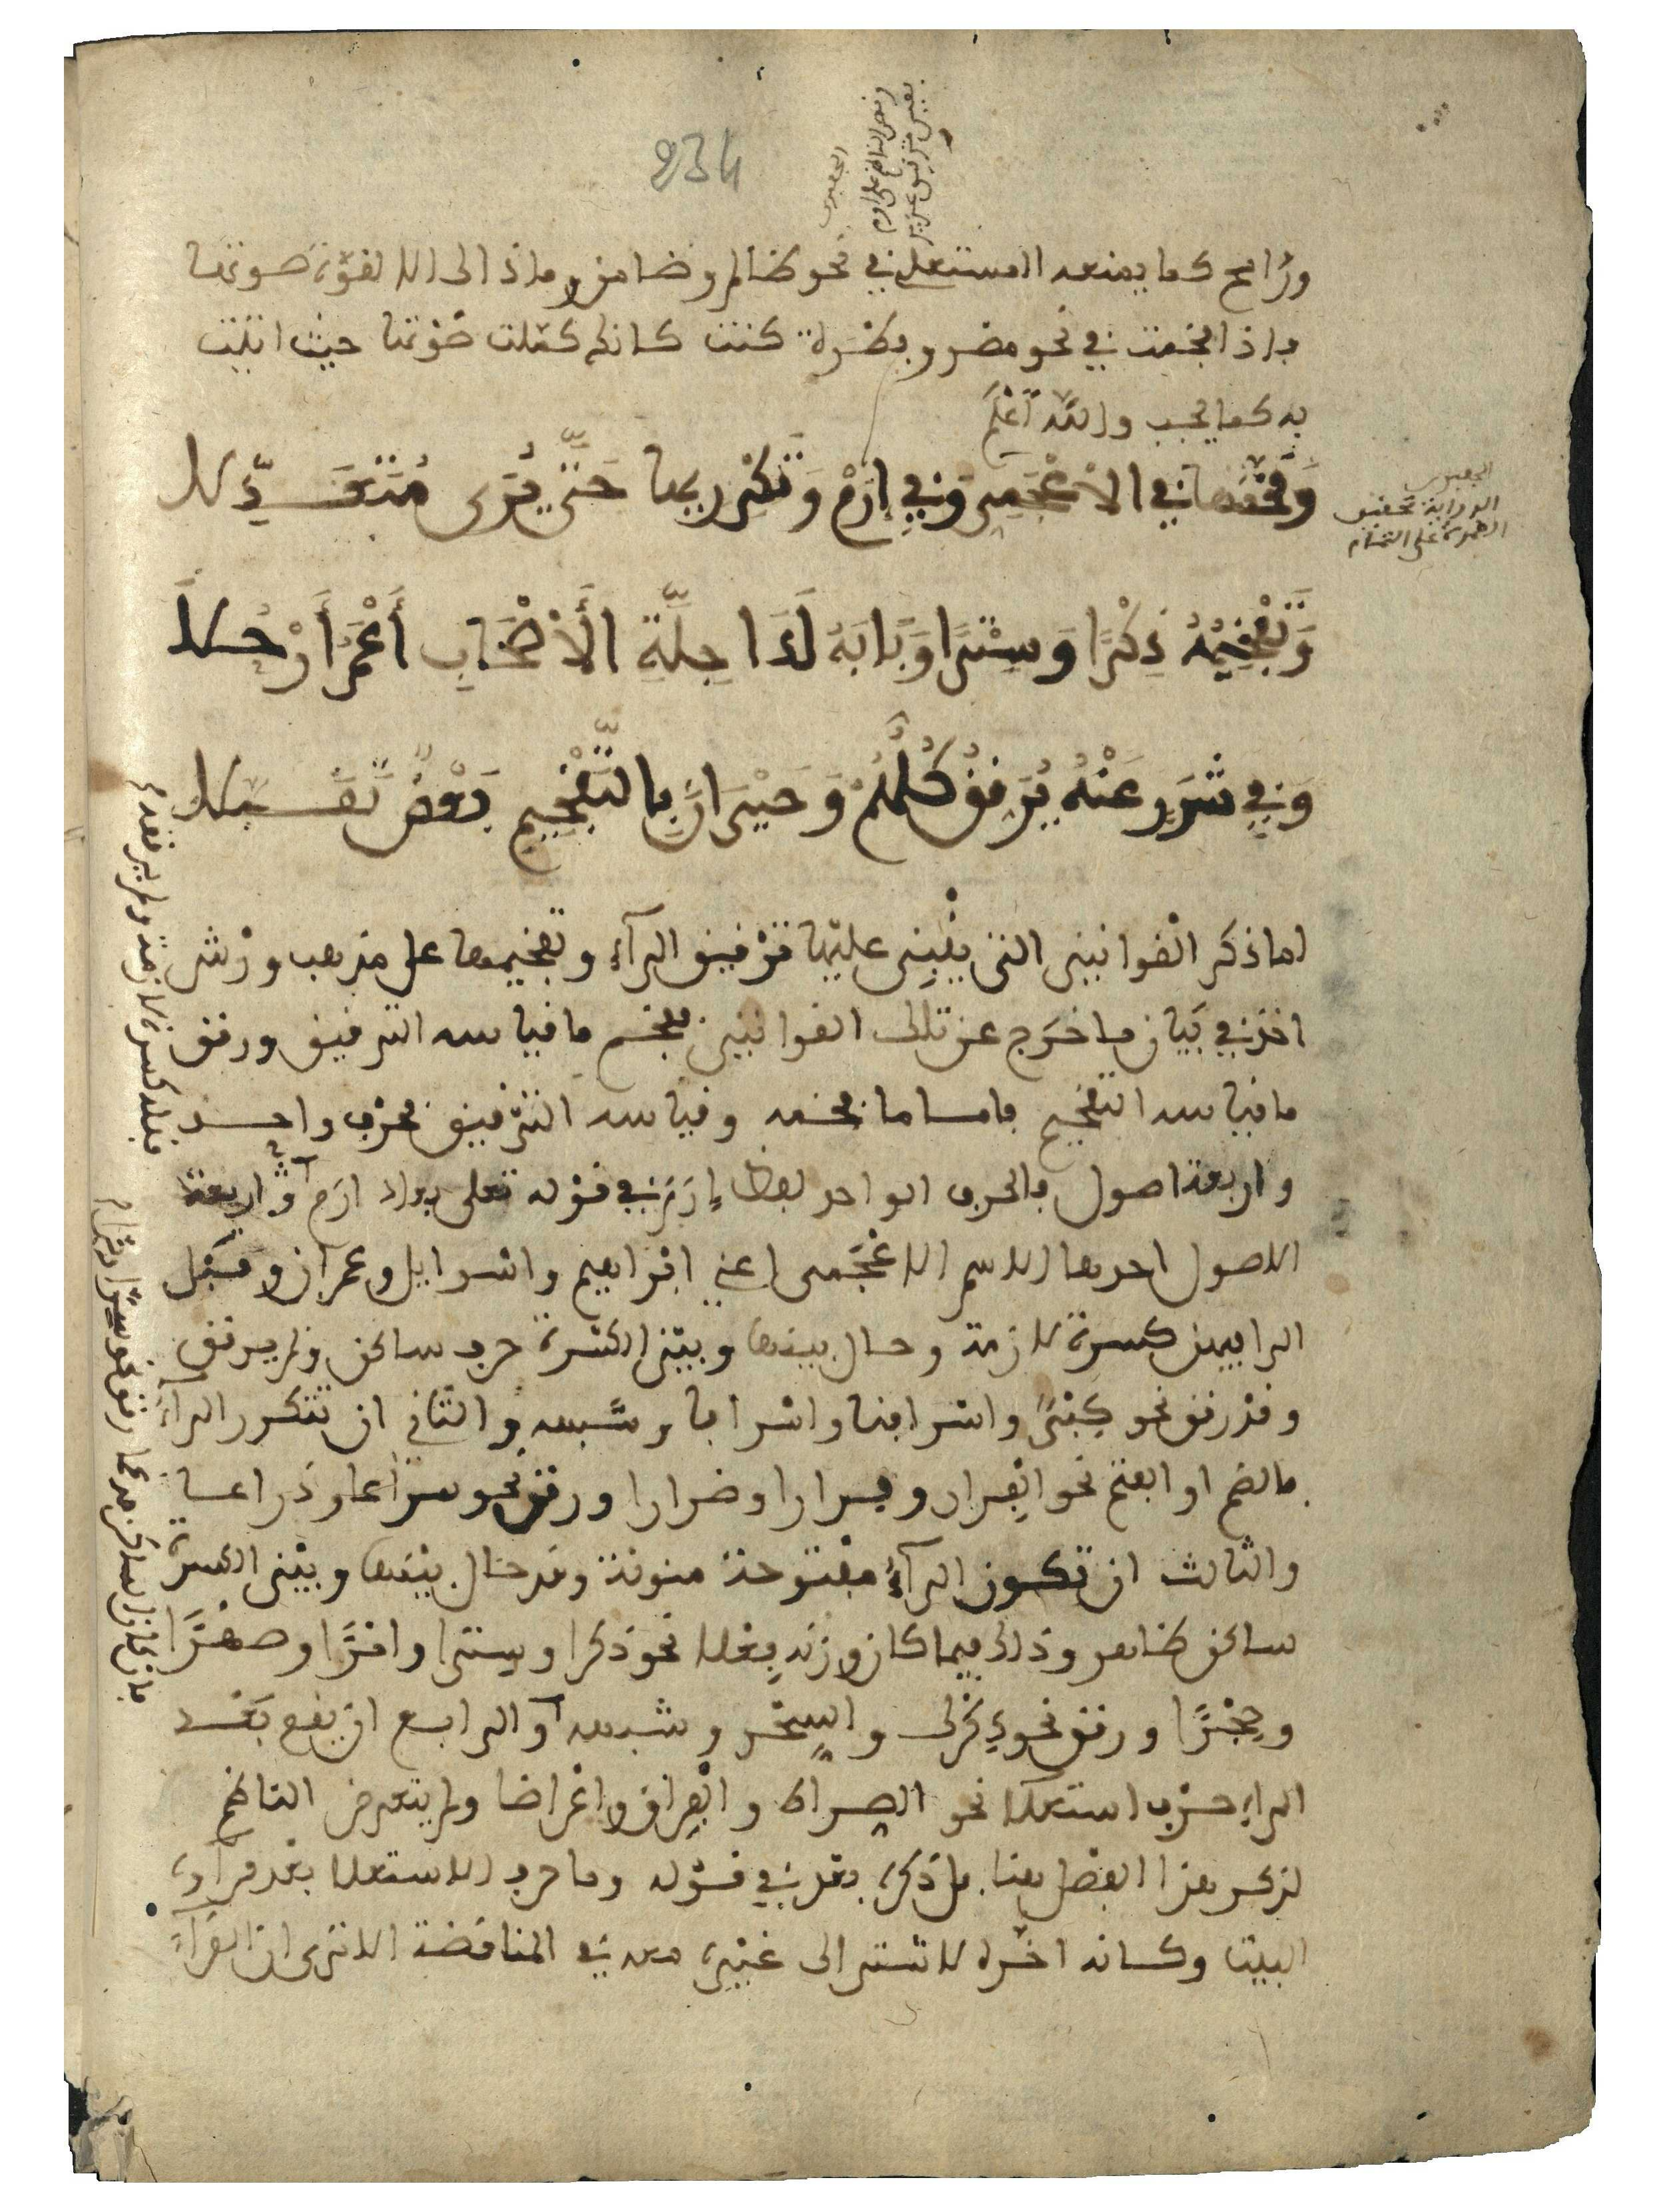 234
الجعبري
ونص الناظم على ارم
ورامح كما يمنعه المستعلي في نحو ظالم وضامن وما ذالك الا لقوة صوتها
فاذا فخمت في نحو مضر وبطرة كنت كانك كملت صوتها حيث اتيت
به كما يجب والله أعلم
وَفَخَّمَهَا في الأَعْجَمِي وَفِي إِرَمْ وَتَكْرِيرِهَا حَتَّى يُرَى مُتَعَدِّلا
الجعبري
الرواية تحقيق
الهمزة على التمام
وَتَفْخِيمُهُ ذِكْرًا وَسِتْرًا وَبَابَهُ لَدَا جِلَّةِ الأَصْحَابِ أَعْمَرُ أَرْحُلاَ
وَفِي شَرَرٍ عَنْهُ يُرَقِّقُ كُلُّهُمْ وَحَيْرَانَ بِالتَّفْخِيمِ بَعْضٌ تَقَبَّلا
لما ذكر القوانين التي ينبني عليها ترقيق الراء وتفخيمها على مذهب ورش
اخذ في بيان ما خرج عن تلك القوانين ففخم ما قياسه الترقيق ورقق
ما قياسه التفخيم فاما ما فخمه وقياسه الترقيق فحرف واحد
واربعة اصول فالحرف الواحد لفظ إرم في قوله تعلى بعاد ارم واربعة
الاصول احدها الاسم الاعجمى اعني ابراهيم واسرايل وعمران وقبل
الرا فيهن كسرة لازمة وحال بينها وبين الكسرة حرف ساكن ولم يرقق
وقد رقق نحو كبر واسرافنا واسرافا وشبهه والثاني ان تتكرر الراء
بالضم او الفتح نحو الفرار وفرارا وضرارا ورقق نحو سراعا وذراعا
والثالث ان تكون الراء مفتوحة منونة وقد حال بينها وبين الكسرة
ساكن ظاهر وذلك فيما كان وزنه فعلا نحو ذكرا وسترا وامرا وصهرا
وحجرا ورقق نحو ذكرك والسحر وشبهه والرابع ان يقع بعد
الراء حرف استعلا نحو الصراط والفراق واعراضا ولم يتعرض الناظم
لذكر هذا الفصل هنا بل ذكره بعد في قوله وما حرف الاستعلا بعد فراءه
البيت وكانه اخره لاشتراك غيره معه في المناقضة الا ترى ان القراء
قبله كسرة لازمة ولم يرققه